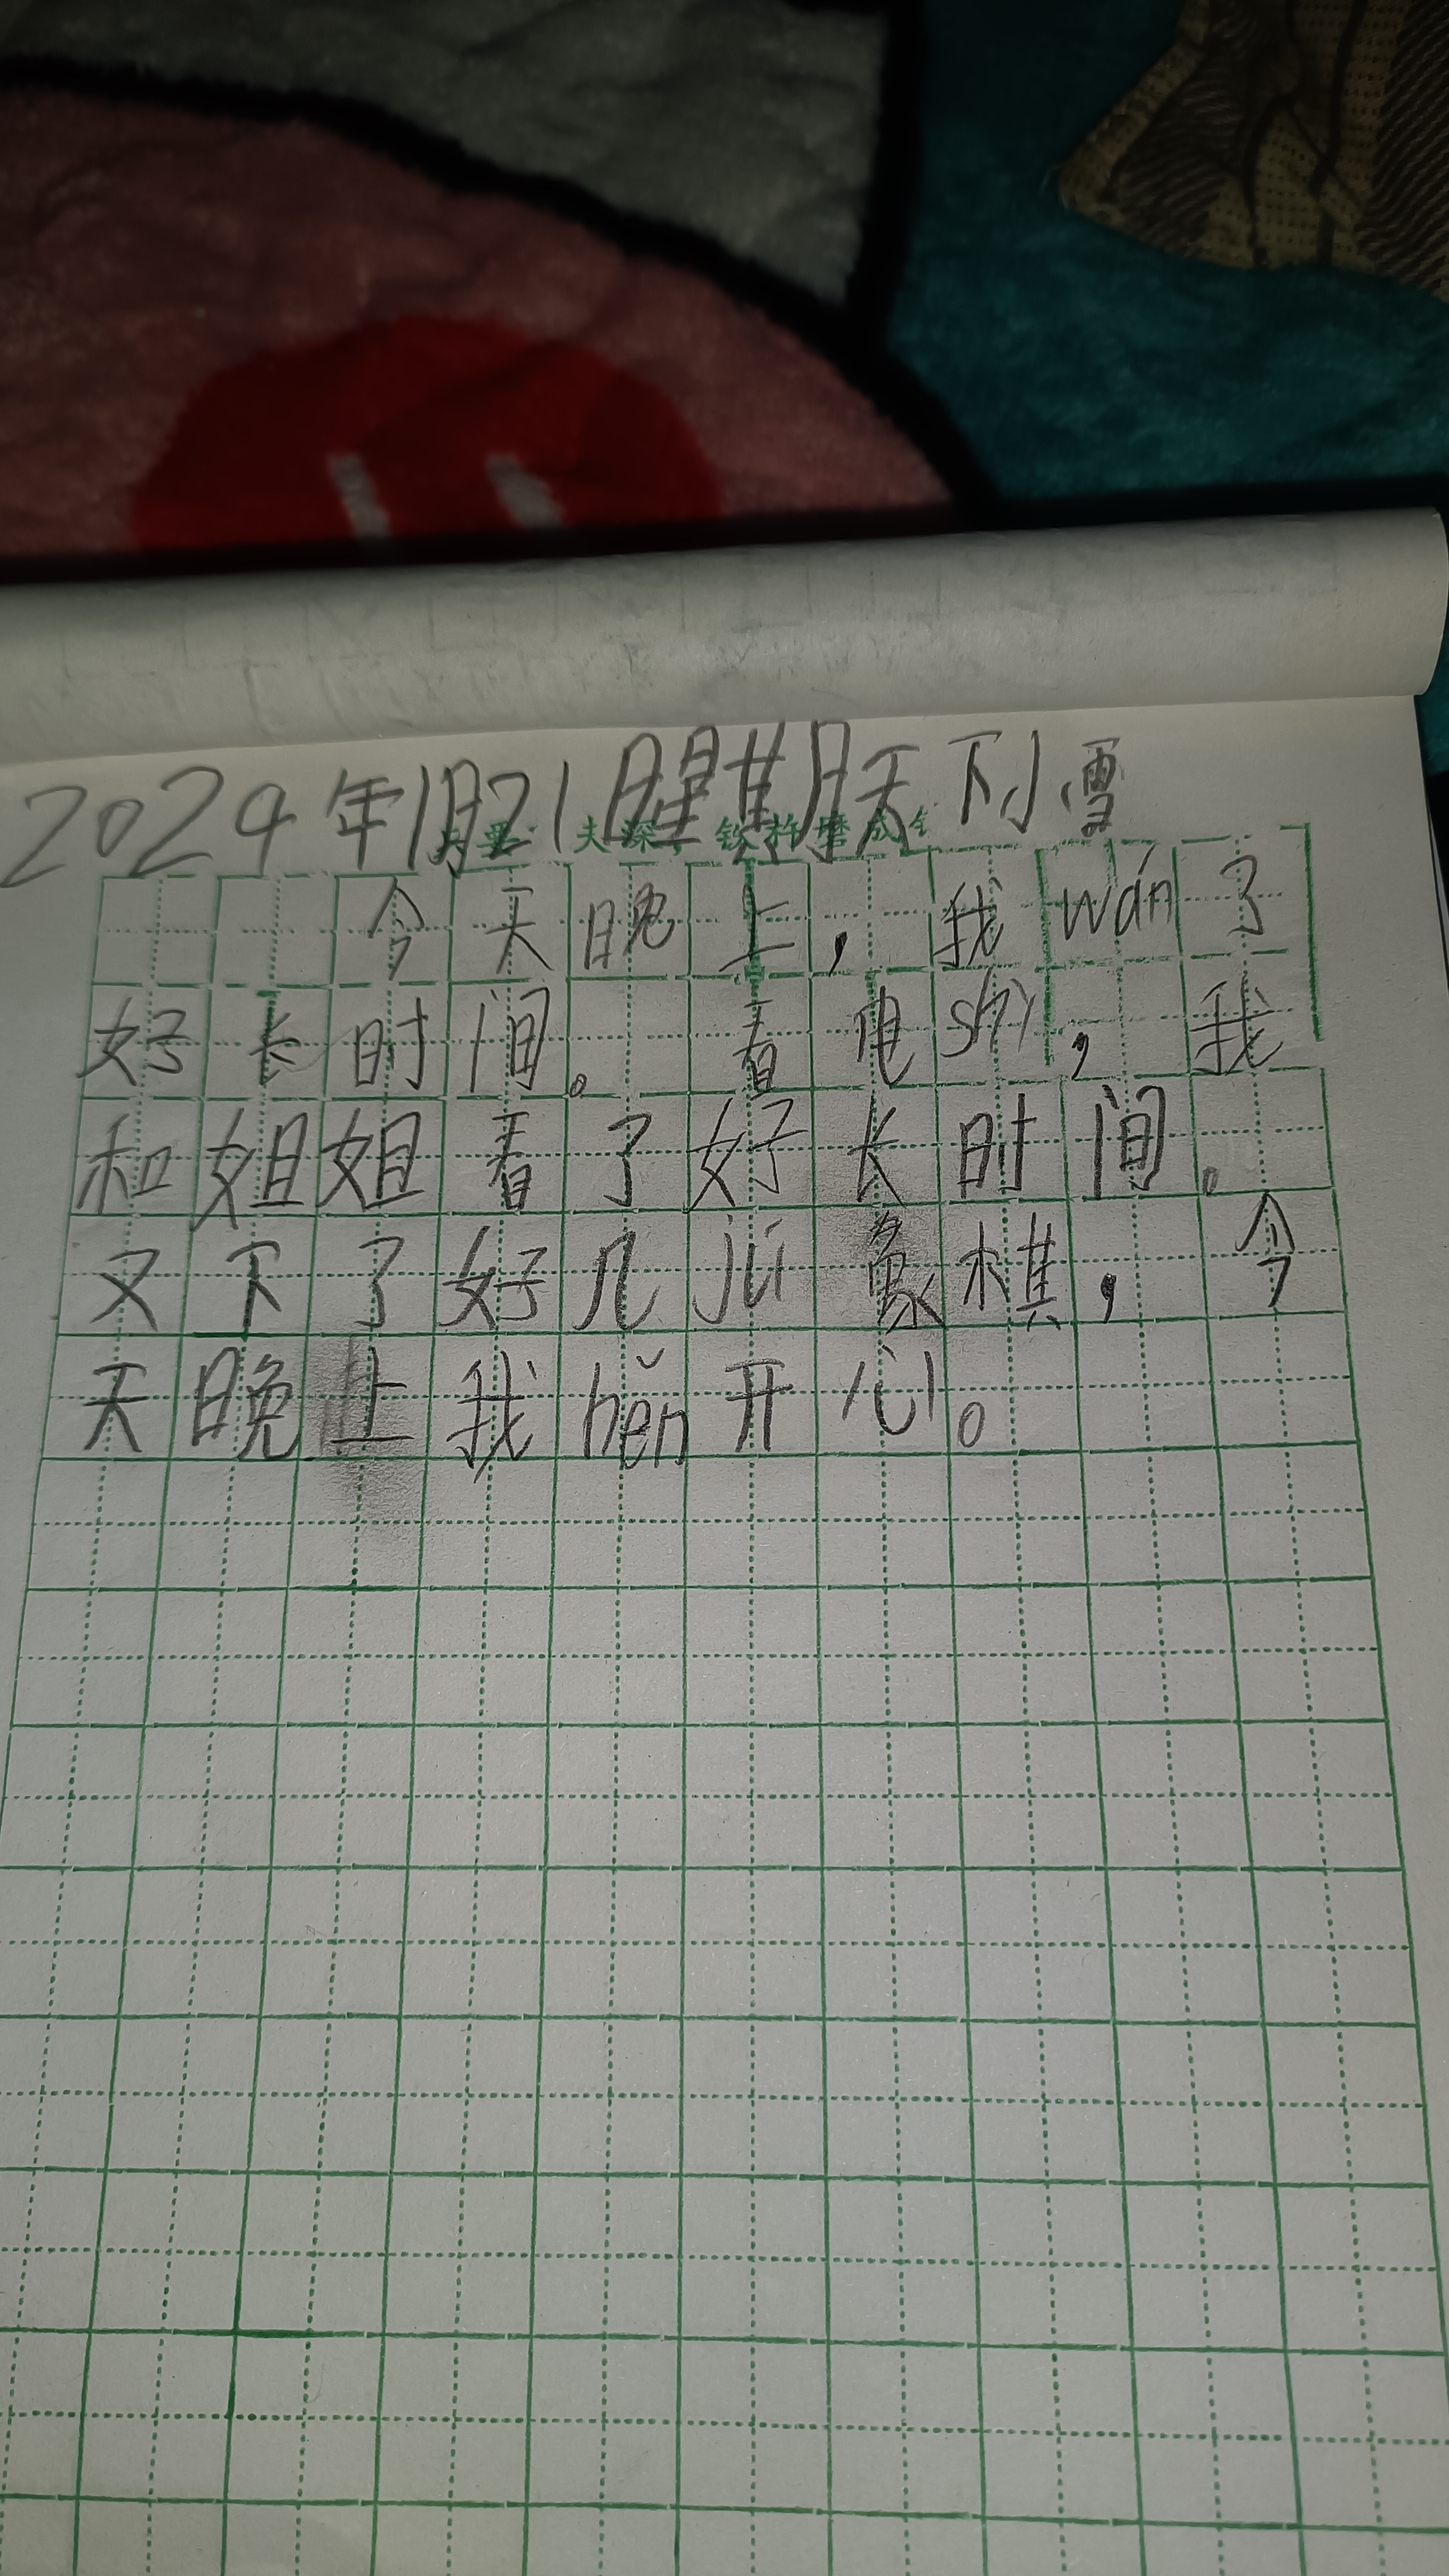 2024年1月21日星期天下小雪
夫深,铁杵磨成
今天晚上,我wán了
好长时间。看电shì,我
和姐姐看了好长时间。
又下了好几jú象棋,今
天晚上我hěn开心。